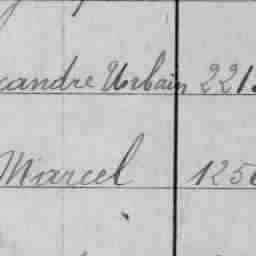 xandre Urbain 221
Marcel 125